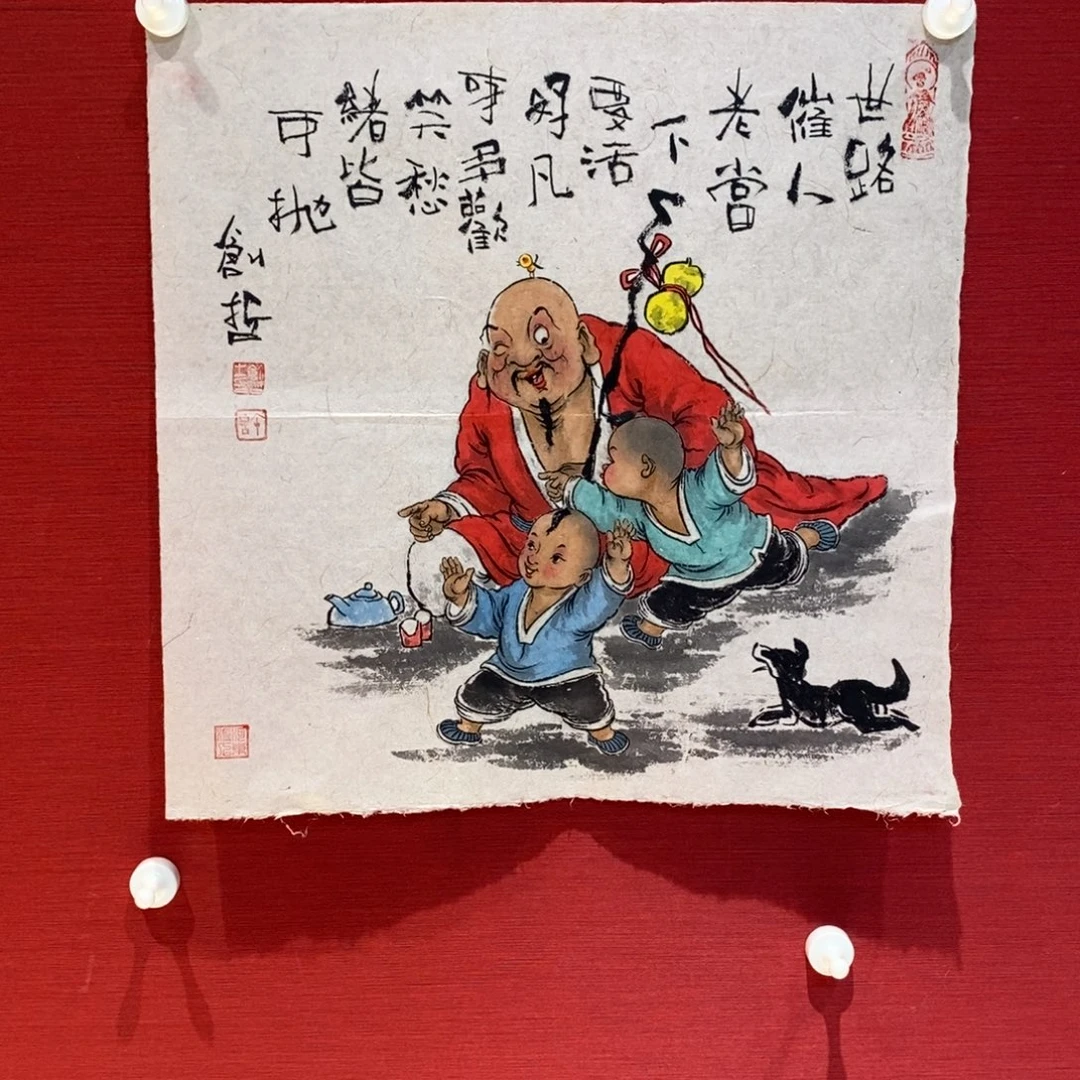 世路
催人
老當
下
要活
好凡
事多歡
笑愁
緒皆
可拋
創哲